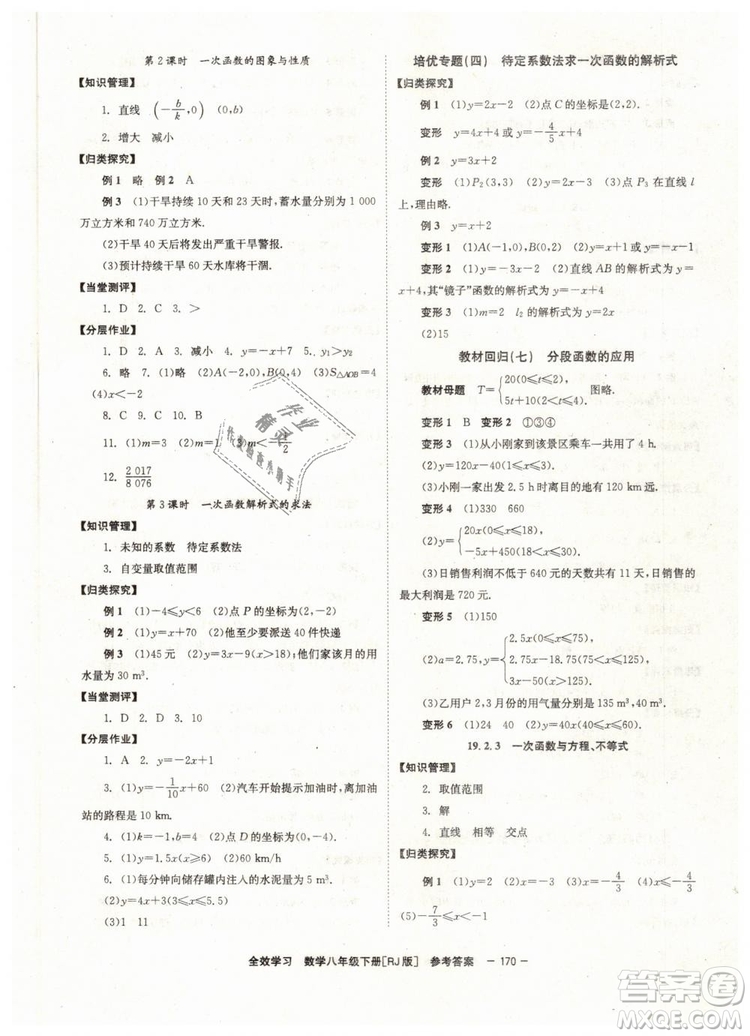 第2课时 一次函数的图象与性质
【知识管理】
1. 直线 (-b/k,0) (0,b)
2. 增大 减小
【归类探究】
例1 略 例2 A
例3 (1)干旱持续10天和23天时,蓄水量分别为1 000
万立方米和740万立方米.
(2)干旱40天后将发出严重干旱警报.
(3)预计持续干旱50天水库将干涸.
【当堂测评】
1. D 2. C 3. >
【分层作业】
1. A 2. B 3. 减小 4. -2 5. y₁>y₂
6. 略 7. (1)略 (2)A(-2,0),B(0,4) (3)S△AOB=4
(4)x<-2
8. C 9. C 10. C
11. (1)m=3 (2)m=1 (3)m<
12. 2 017/8 076
第3课时 一次函数解析式的求法
【知识管理】
1. 未知的系数 待定系数法
2. 自变量取值范围
【归类探究】
例1 (1)-4≤y<6 (2)点P的坐标为(2,-2)
例2 (1)y=x+70 (2)他至少要派送40件快递
例3 (1)45元 (2)y=3x-9(x>15) (3)他们家该月的用
水量为50 m³.
【当堂测评】
1. D 2. D 3. y=-2x
【分层作业】
1. A 2. y=-2x
3. (1)y=-1/10x+60 (2)汽车开始提示加油时,离加油
站的路程是10 km.
4. (1)k=-1,b=4 (2)点D的坐标为(0,-4)
5. (1)y=1.5x+4.5(x≥2) (2)60 km/h
6. (1)每分钟向储存罐内注入的水泥量为5 m³.
(2)y=4x+3(3≤x≤5.5)
(3)1 11
培优专题(四) 待定系数法求一次函数的解析式
【归类探究】
例1 (1)y=2x-2 (2)点C的坐标是(2,2).
变形 y=4/5x+4或y=-4/5x+4
例2 y=3x-2
变形 (1)P₂(3,3) (2)y=2x-3 (3)点P₃在直线l
上,理由略.
例3 y=x+2
变形1 (1)A(-1,0),B(0,2)
变形2 (1)y=-3x-2 (2)直线AB的解析式为y=
x+4,其“镜子”函数的解析式为y=-x+4
变形3 (1)m=2 l₂的解析式为y=2x
(2)15
教材回归(七) 分段函数的应用
教材母题 T={20(0≤t≤2), 图略.
5t+10(2<t≤4),
变形1 B 变形2 ①③④
变形3 (1)从小刚家到该景区乘车一共用了4 h.
(2)小刚一家出发2.5 h时离目的地120 km.
变形4 (1)330 660
(2)y={20x(0≤x≤18),
-5x+450(18<x≤30)
(3)日销售利润不低于640元的天数共有11天,日销售的
最大利润是720元.
变形5 (1)150
(2)a=2.75,y={2.5x(0≤x≤75),
2.75x-18.75(75<x≤125),
3x-50(x>125)
(3)乙用户2、3月份的用气量分别是135 m³,40 m³.
变形6 (1)24 40 (2)y=40t(40≤t≤60)
19.2.3 一次函数与方程、不等式
【知识管理】
2. 取值范围
3. 解
4. 直线 相等 交点
【归类探究】
例1 (1)y=2 (2)x=2 (3)x=-4/3 (4)x<-4/3
(5)-7/3≤x≤-1
全效学习 数学八年级下册[RJ版] 参考答案 -170-
作业
精灵
作业检查小助手
答案
MXQE.COM